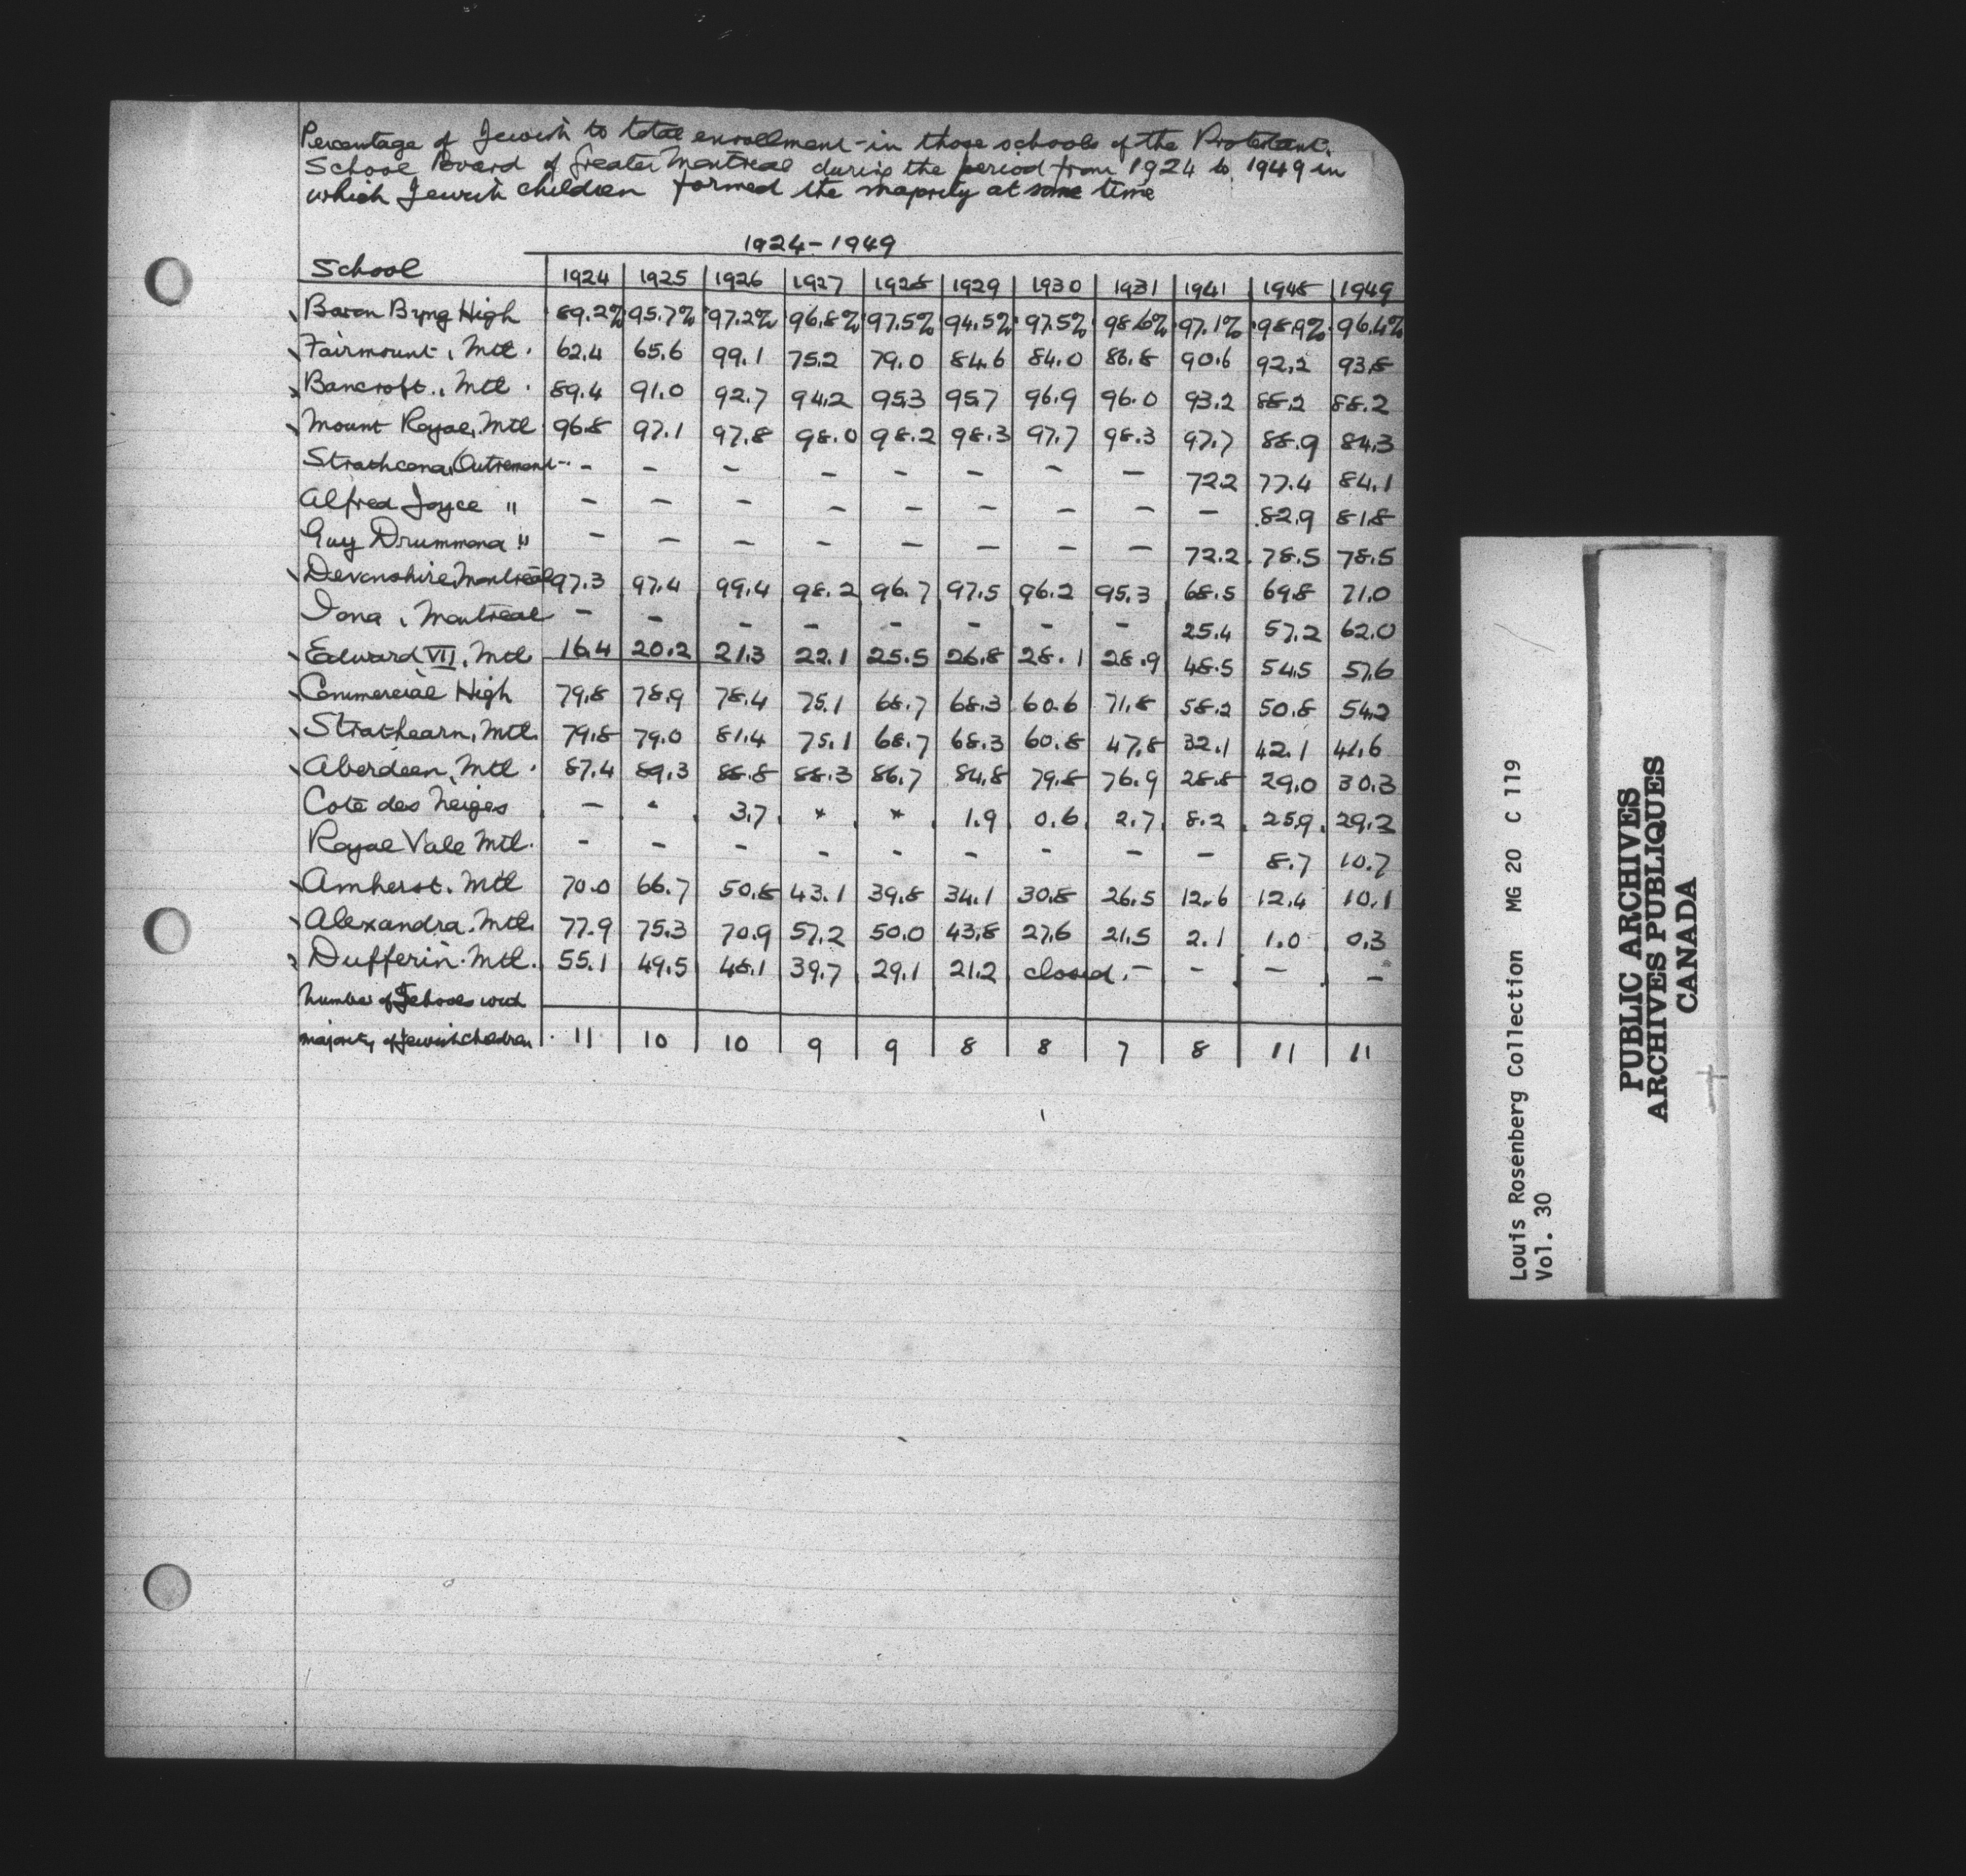 Percentage of Jewish to total enrollment in those schools of the Protestant
School Board of Greater Montreal during the period from 1924 to 1949 in
which Jewish children formed the majority at some time
1924-1949
School 1924 1925 1926 1927 1928 1929 1930 1931 1941 1948 1949
Baron Byng High 89.2% 95.7% 97.2% 96.8% 97.5% 94.5% 97.5% 98.6% 97.1% 98.9% 96.4%
Fairmount, Mtl. 62.4 65.6 99.1 75.2 79.0 84.6 84.0 86.8 90.6 92.2 93.8
Bancroft, Mtl. 89.4 91.0 92.7 94.2 95.3 95.7 96.9 96.0 93.2 88.2 88.2
Mount Royal, Mtl. 96.8 97.1 97.8 98.0 98.2 98.3 97.7 98.3 97.7 88.9 84.3
Strathcona, Outremont - - - - - - - - 72.2 77.4 84.1
Alfred Joyce " - - - - - - - - - 82.9 81.8
Guy Drummond " - - - - - - - - 72.2 78.5 78.5
Devonshire, Montreal 97.3 97.4 99.4 98.2 96.7 97.5 96.2 95.3 68.5 69.8 71.0
Iona, Montreal - - - - - - - - 25.4 57.2 62.0
Edward VII, Mtl. 16.4 20.2 21.3 22.1 25.5 26.8 28.1 28.9 48.5 54.5 57.6
Commercial High 79.8 78.9 78.4 75.1 68.7 68.3 60.6 71.8 58.2 50.8 54.2
Strathearn, Mtl. 79.8 79.0 81.4 75.1 68.7 68.3 60.8 47.8 32.1 42.1 41.6
Aberdeen, Mtl. 87.4 89.3 88.8 88.3 86.7 84.8 79.8 76.9 28.8 29.0 30.3
Cote des Neiges - * 3.7 * * 1.9 0.6 2.7 8.2 25.9 29.3
Royal Vale Mtl. - - - - - - - - - 8.7 10.7
Amherst. Mtl 70.0 66.7 50.8 43.1 39.8 34.1 30.8 26.5 12.6 12.4 10.1
Alexandra. Mtl. 77.9 75.3 70.9 57.2 50.0 43.8 27.6 21.5 2.1 1.0 0.3
Dufferin. Mtl. 55.1 49.5 48.1 39.7 29.1 21.2 closed. - - - -
Number of Schools with
majority of Jewish children 11 10 10 9 9 8 8 7 8 11 11
Louis Rosenberg Collection MG 20 C 119
Vol. 30
PUBLIC ARCHIVES
ARCHIVES PUBLIQUES
CANADA